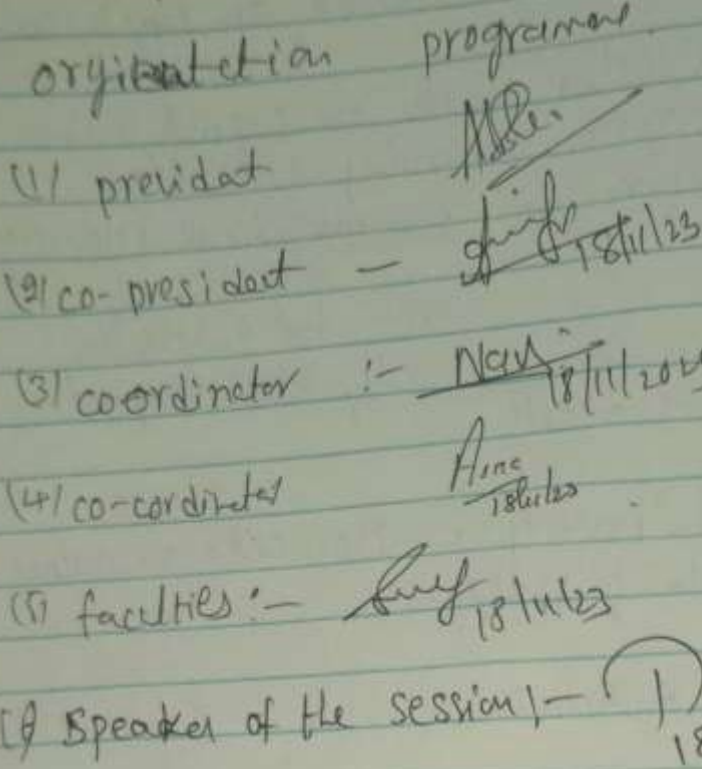 orgitatction programme
(1) previdat
(2) co-presidact - 18/11/23
(3) coordinctor :- Nav 18/11/202
(4) co-cordinctor 18/11/23
(5) faculties :- 18/11/23
Speaker of the session :- 18